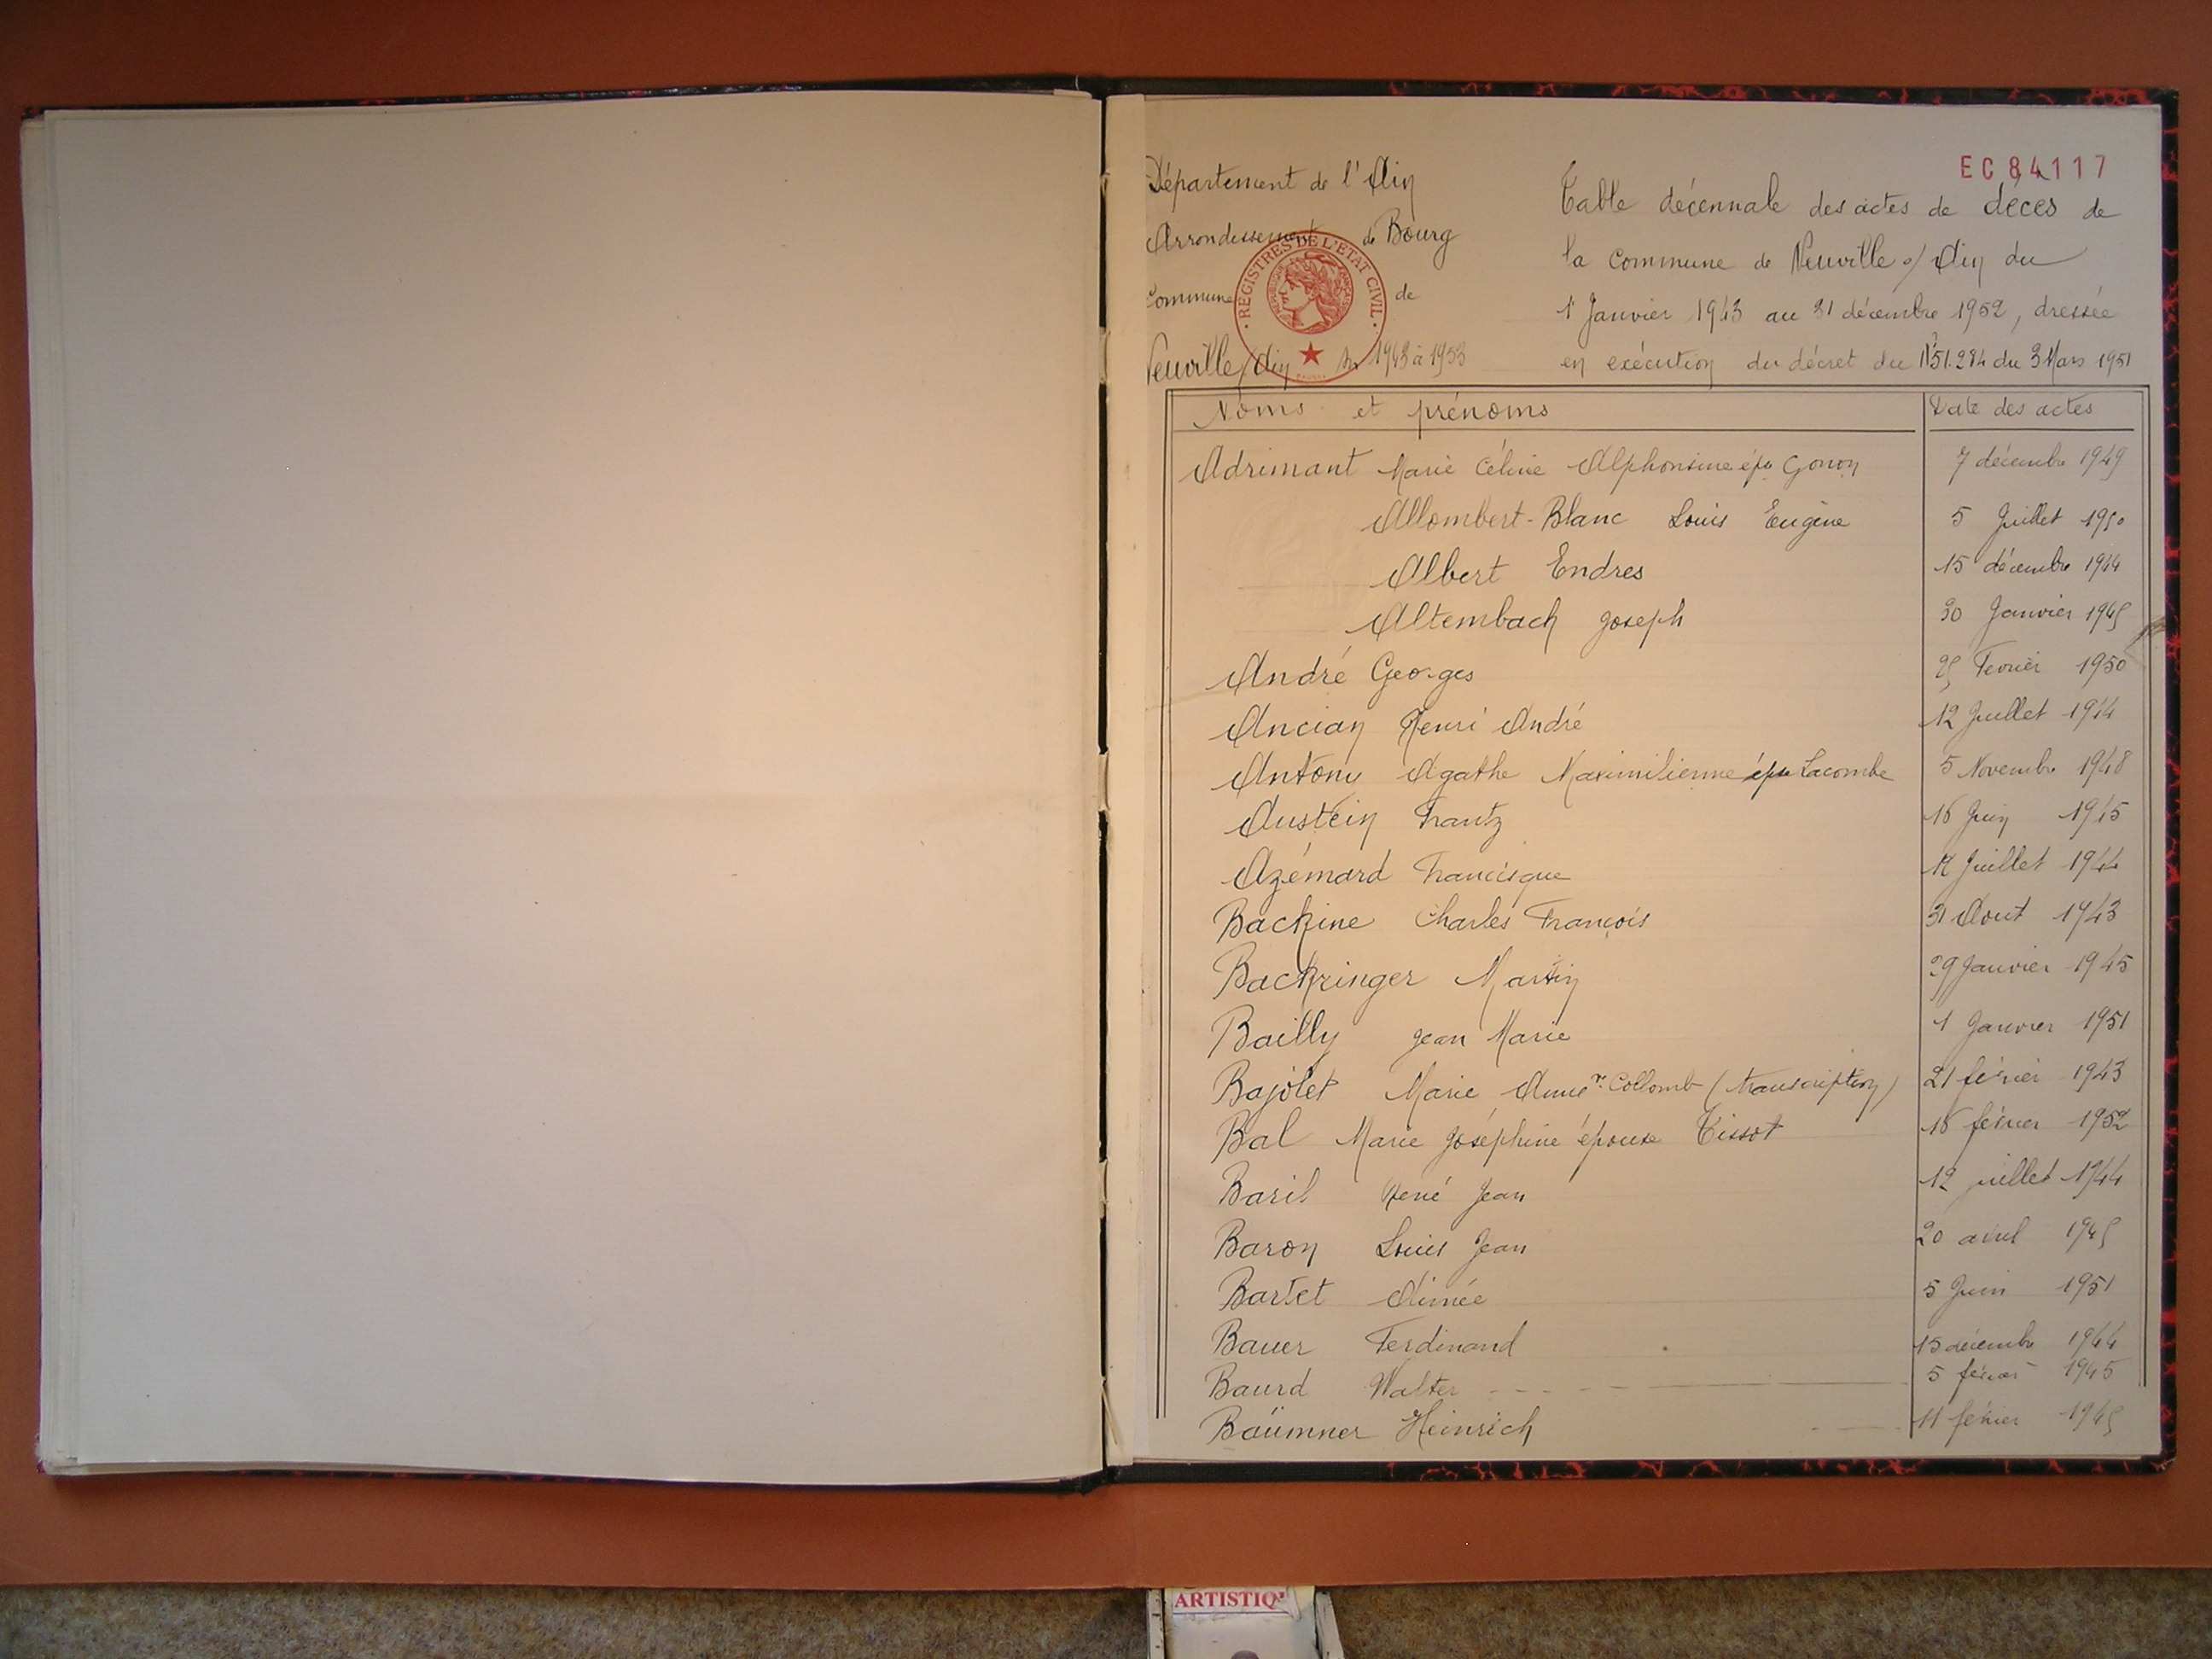 EC 84117
Département de l'Ain
Arrondissement de Bourg
Commune de
Neuville/Ain 1943 à 1953
REGISTRES DE L'ETAT CIVIL
Table décennale des actes de décès de
la commune de Neuville s/ Ain du
1 Janvier 1943 au 31 décembre 1952, dressée
en exécution du décret du N°51.284 du 3 Mars 1951
Noms et prénoms Date des actes
Adrimant Marie Céline Alphonsine épse Gonon 7 décembre 1949
Allombert-Blanc Louis Eugène 5 Juillet 1950
Albert Endres 15 décembre 1944
Altembach Joseph 30 Janvier 1945
André Georges 25 Fevrier 1950
Ancian Henri André 12 Juillet 1944
Antony Agathe Maximilienne épse Lacombe 5 Novembre 1948
Austein Frantz 16 Juin 1945
Azémard Francisque 12 Juillet 1944
Backine Charles François 31 Aout 1943
Backringer Martin 29 Janvier 1945
Bailly Jean Marie 1 Janvier 1951
Bajolet Marie Anne Vve Collomb (transcription) 21 février 1943
Bal Marie Joséphine épouse Tissot 16 février 1952
Baril René Jean 12 juillet 1944
Baron Louis Jean 20 avril 1945
Bartet Aimée 5 Juin 1951
Bauer Ferdinand 15 décembre 1944
Baurd Walter 5 février 1945
Baümner Heinrich 11 février 1945
ARTISTIQ